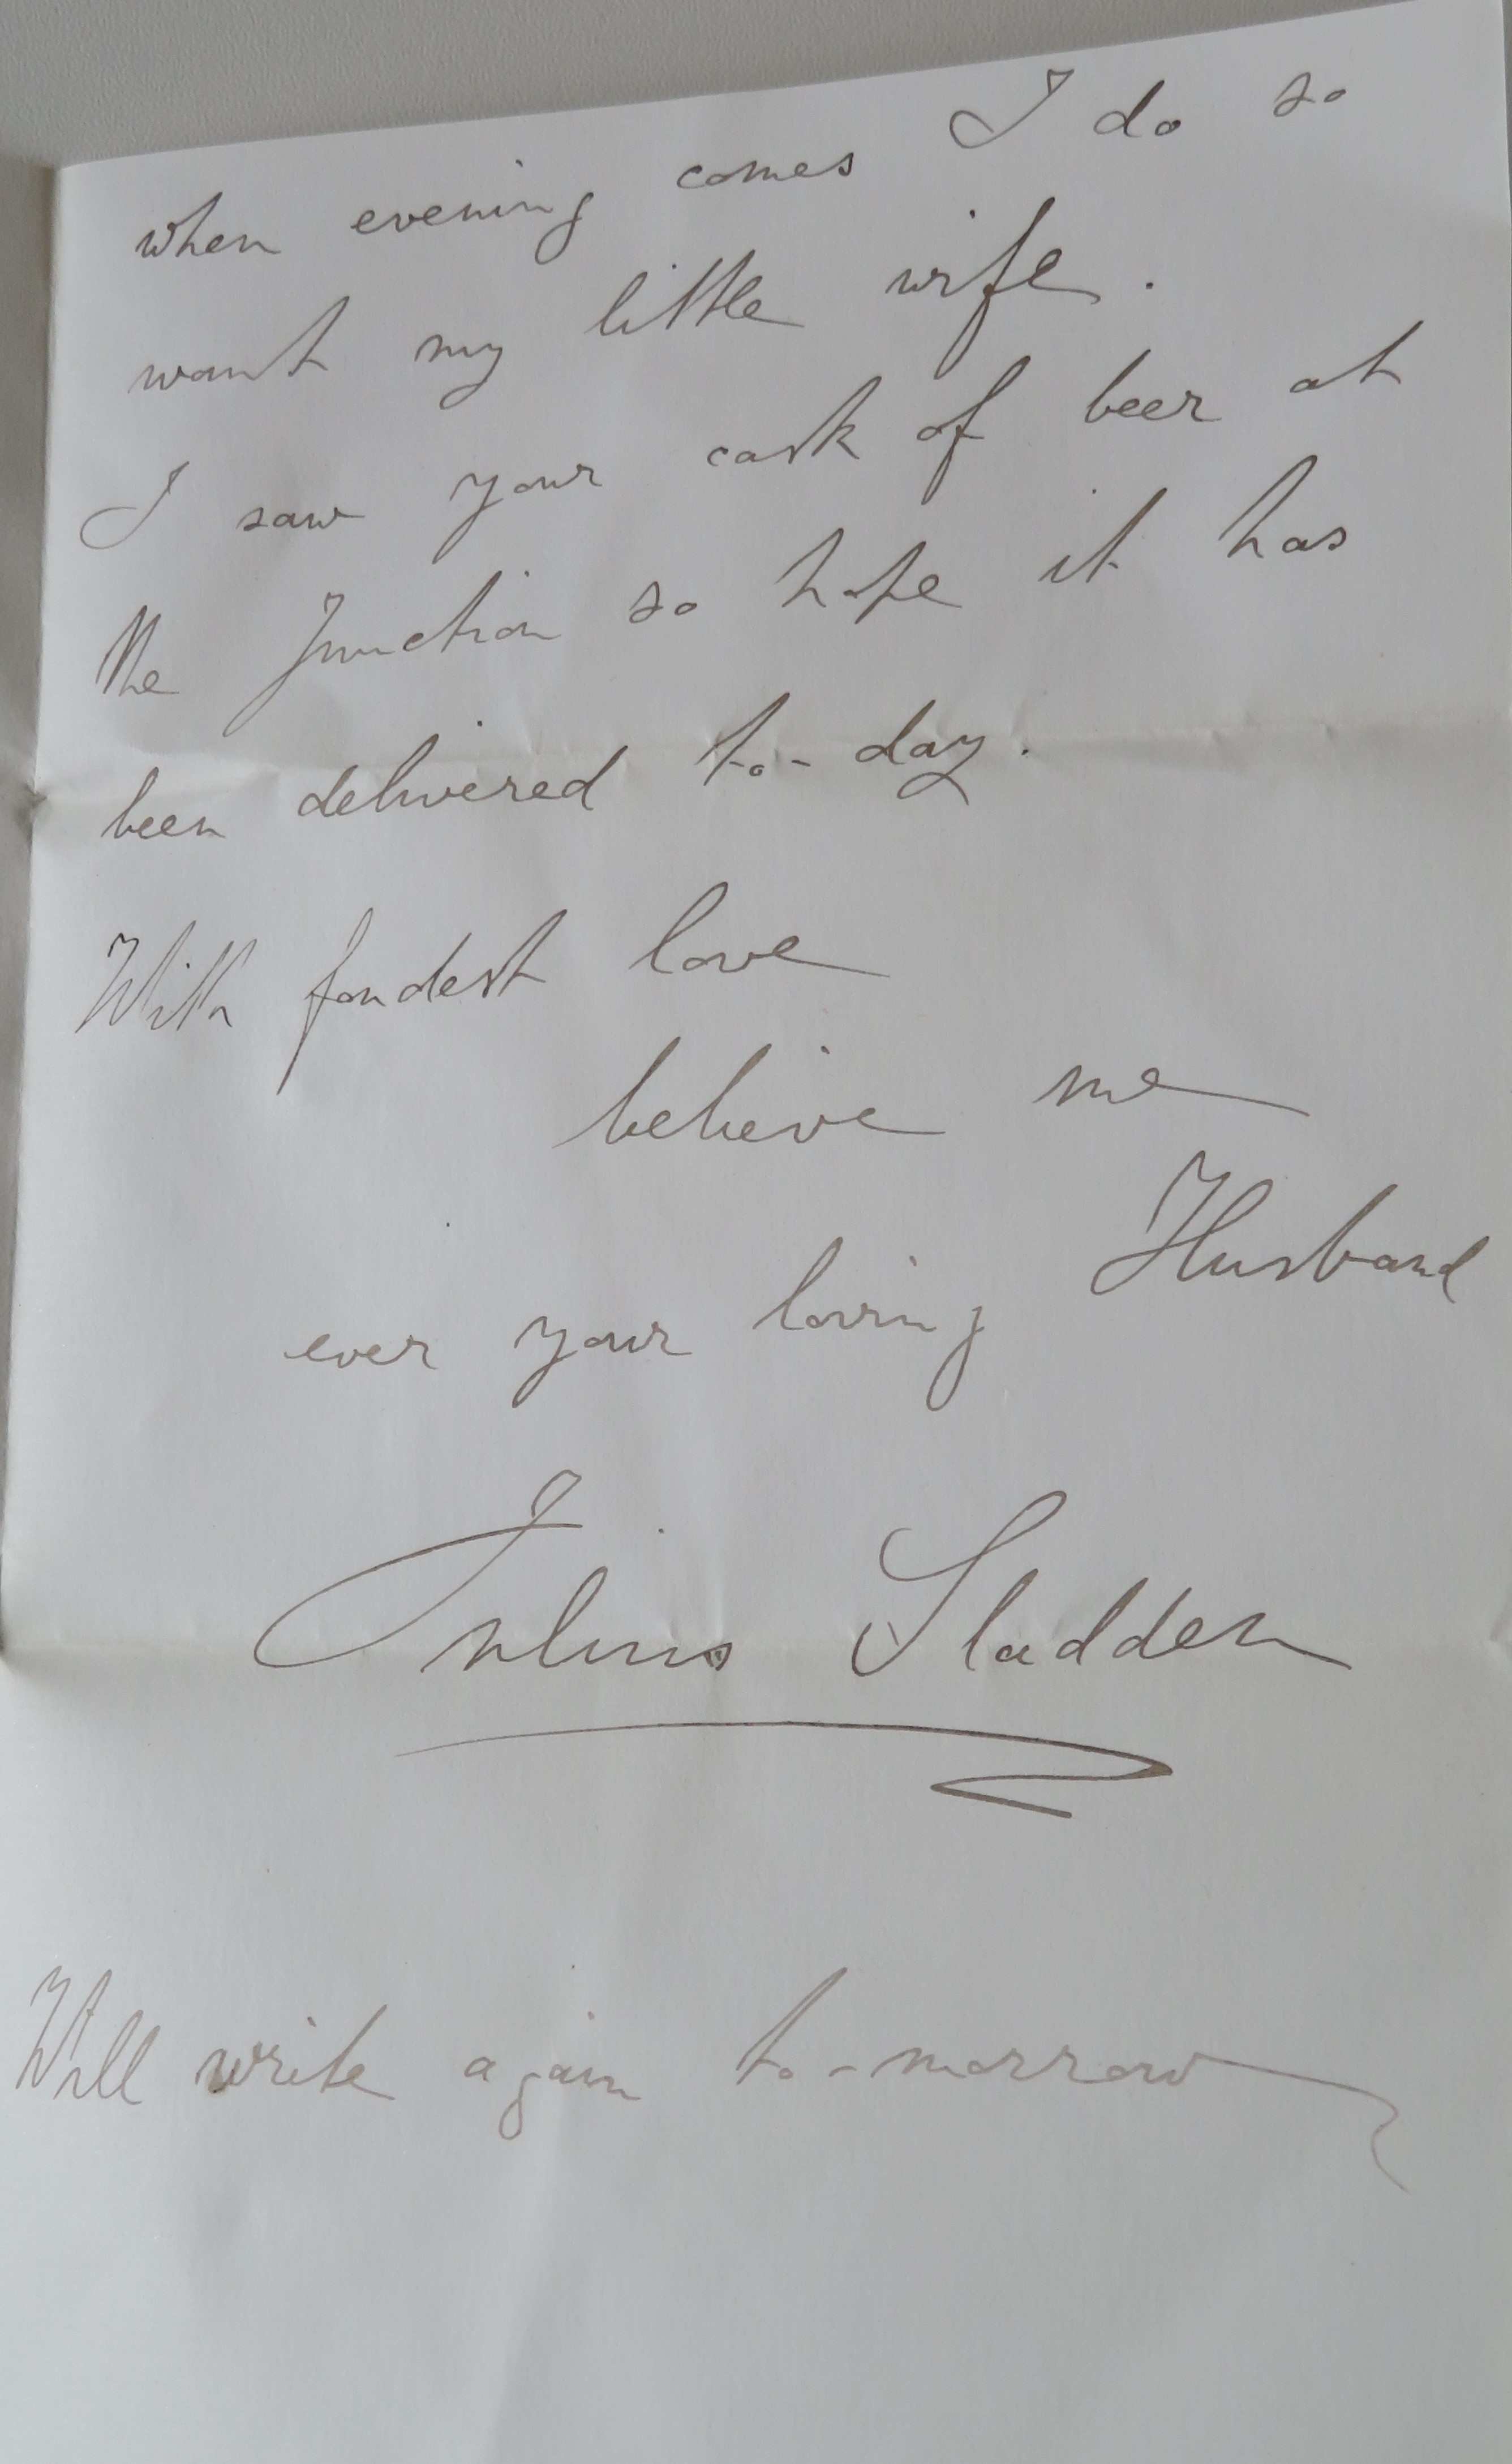 when evening comes I do so
want my little wife.
I saw your cask of beer at
the Junction so hope it has
been delivered to-day.
With fondest love
believe me
ever your loving Husband
Julius Sladden
Will write again to-morrow